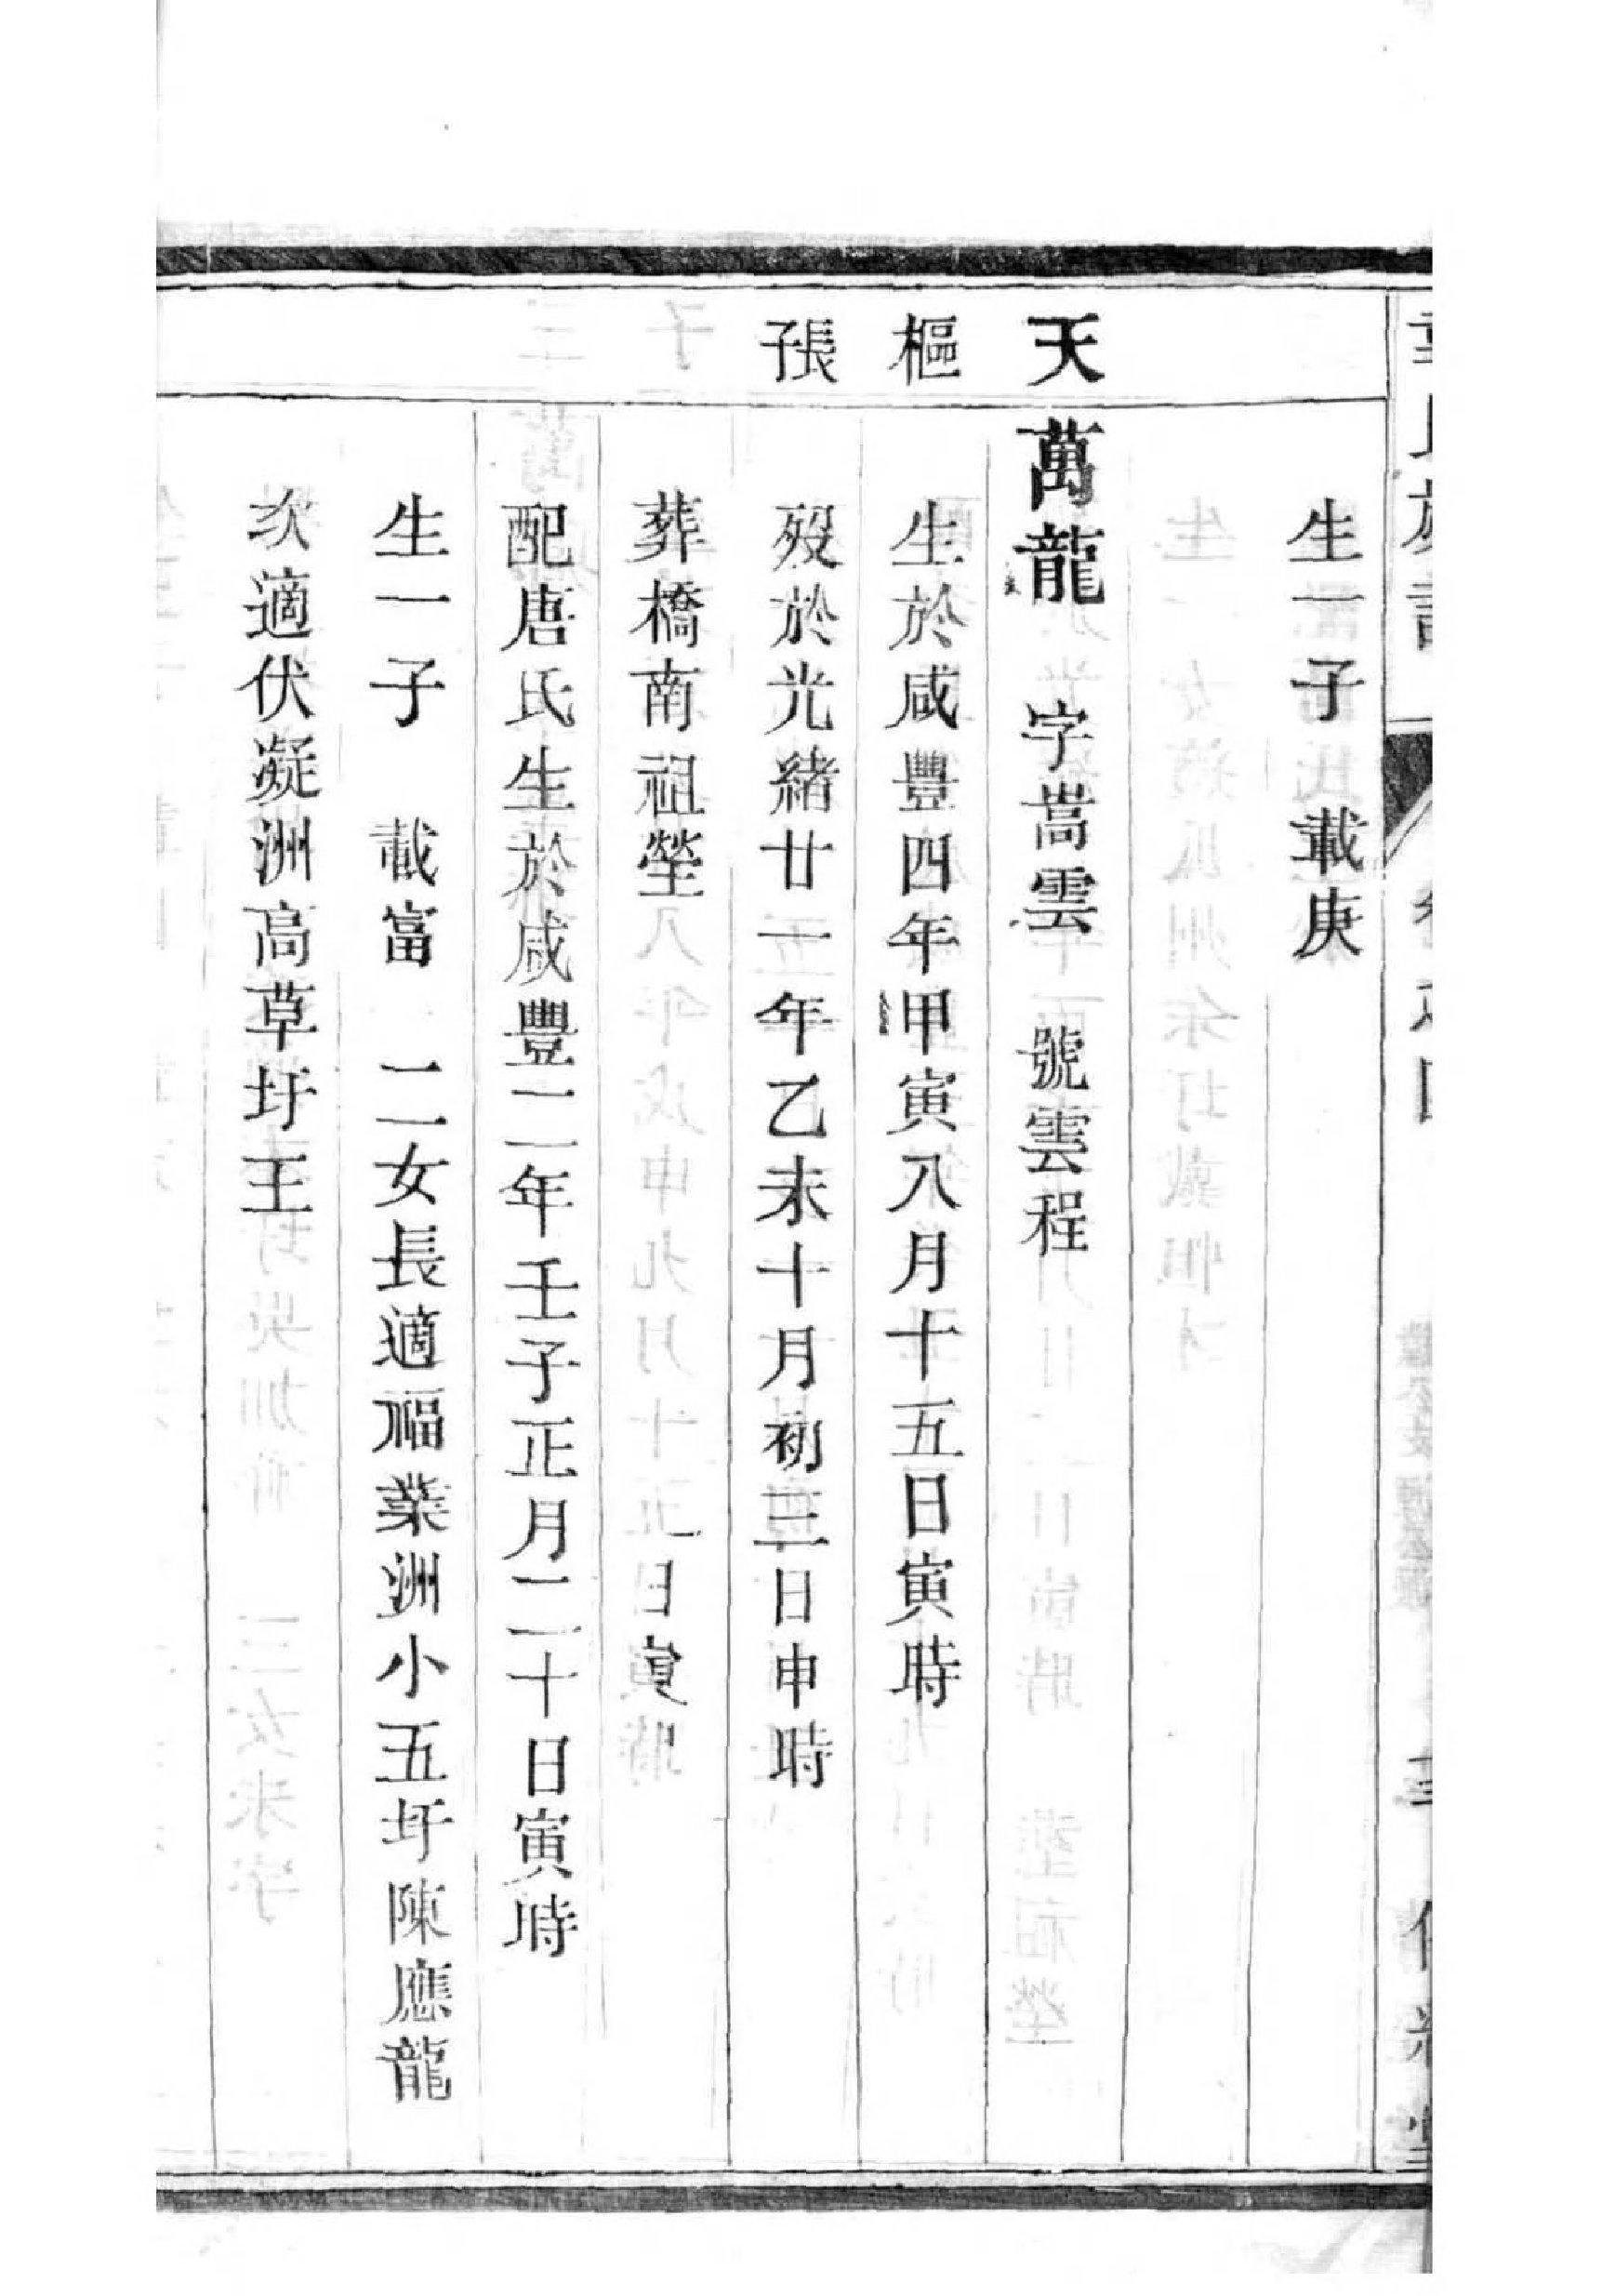 生一子 載庚
天樞張
萬龍 字嵩雲 號雲程
生於咸豐四年甲寅八月十五日寅時
歿於光緒廿一年乙未十月初三日申時
葬橋南祖塋
配唐氏生於咸豐二年壬子正月二十日寅時
生一子 載富 二女長適福業洲小五圩陳應龍
次適伏凝洲高草圩王